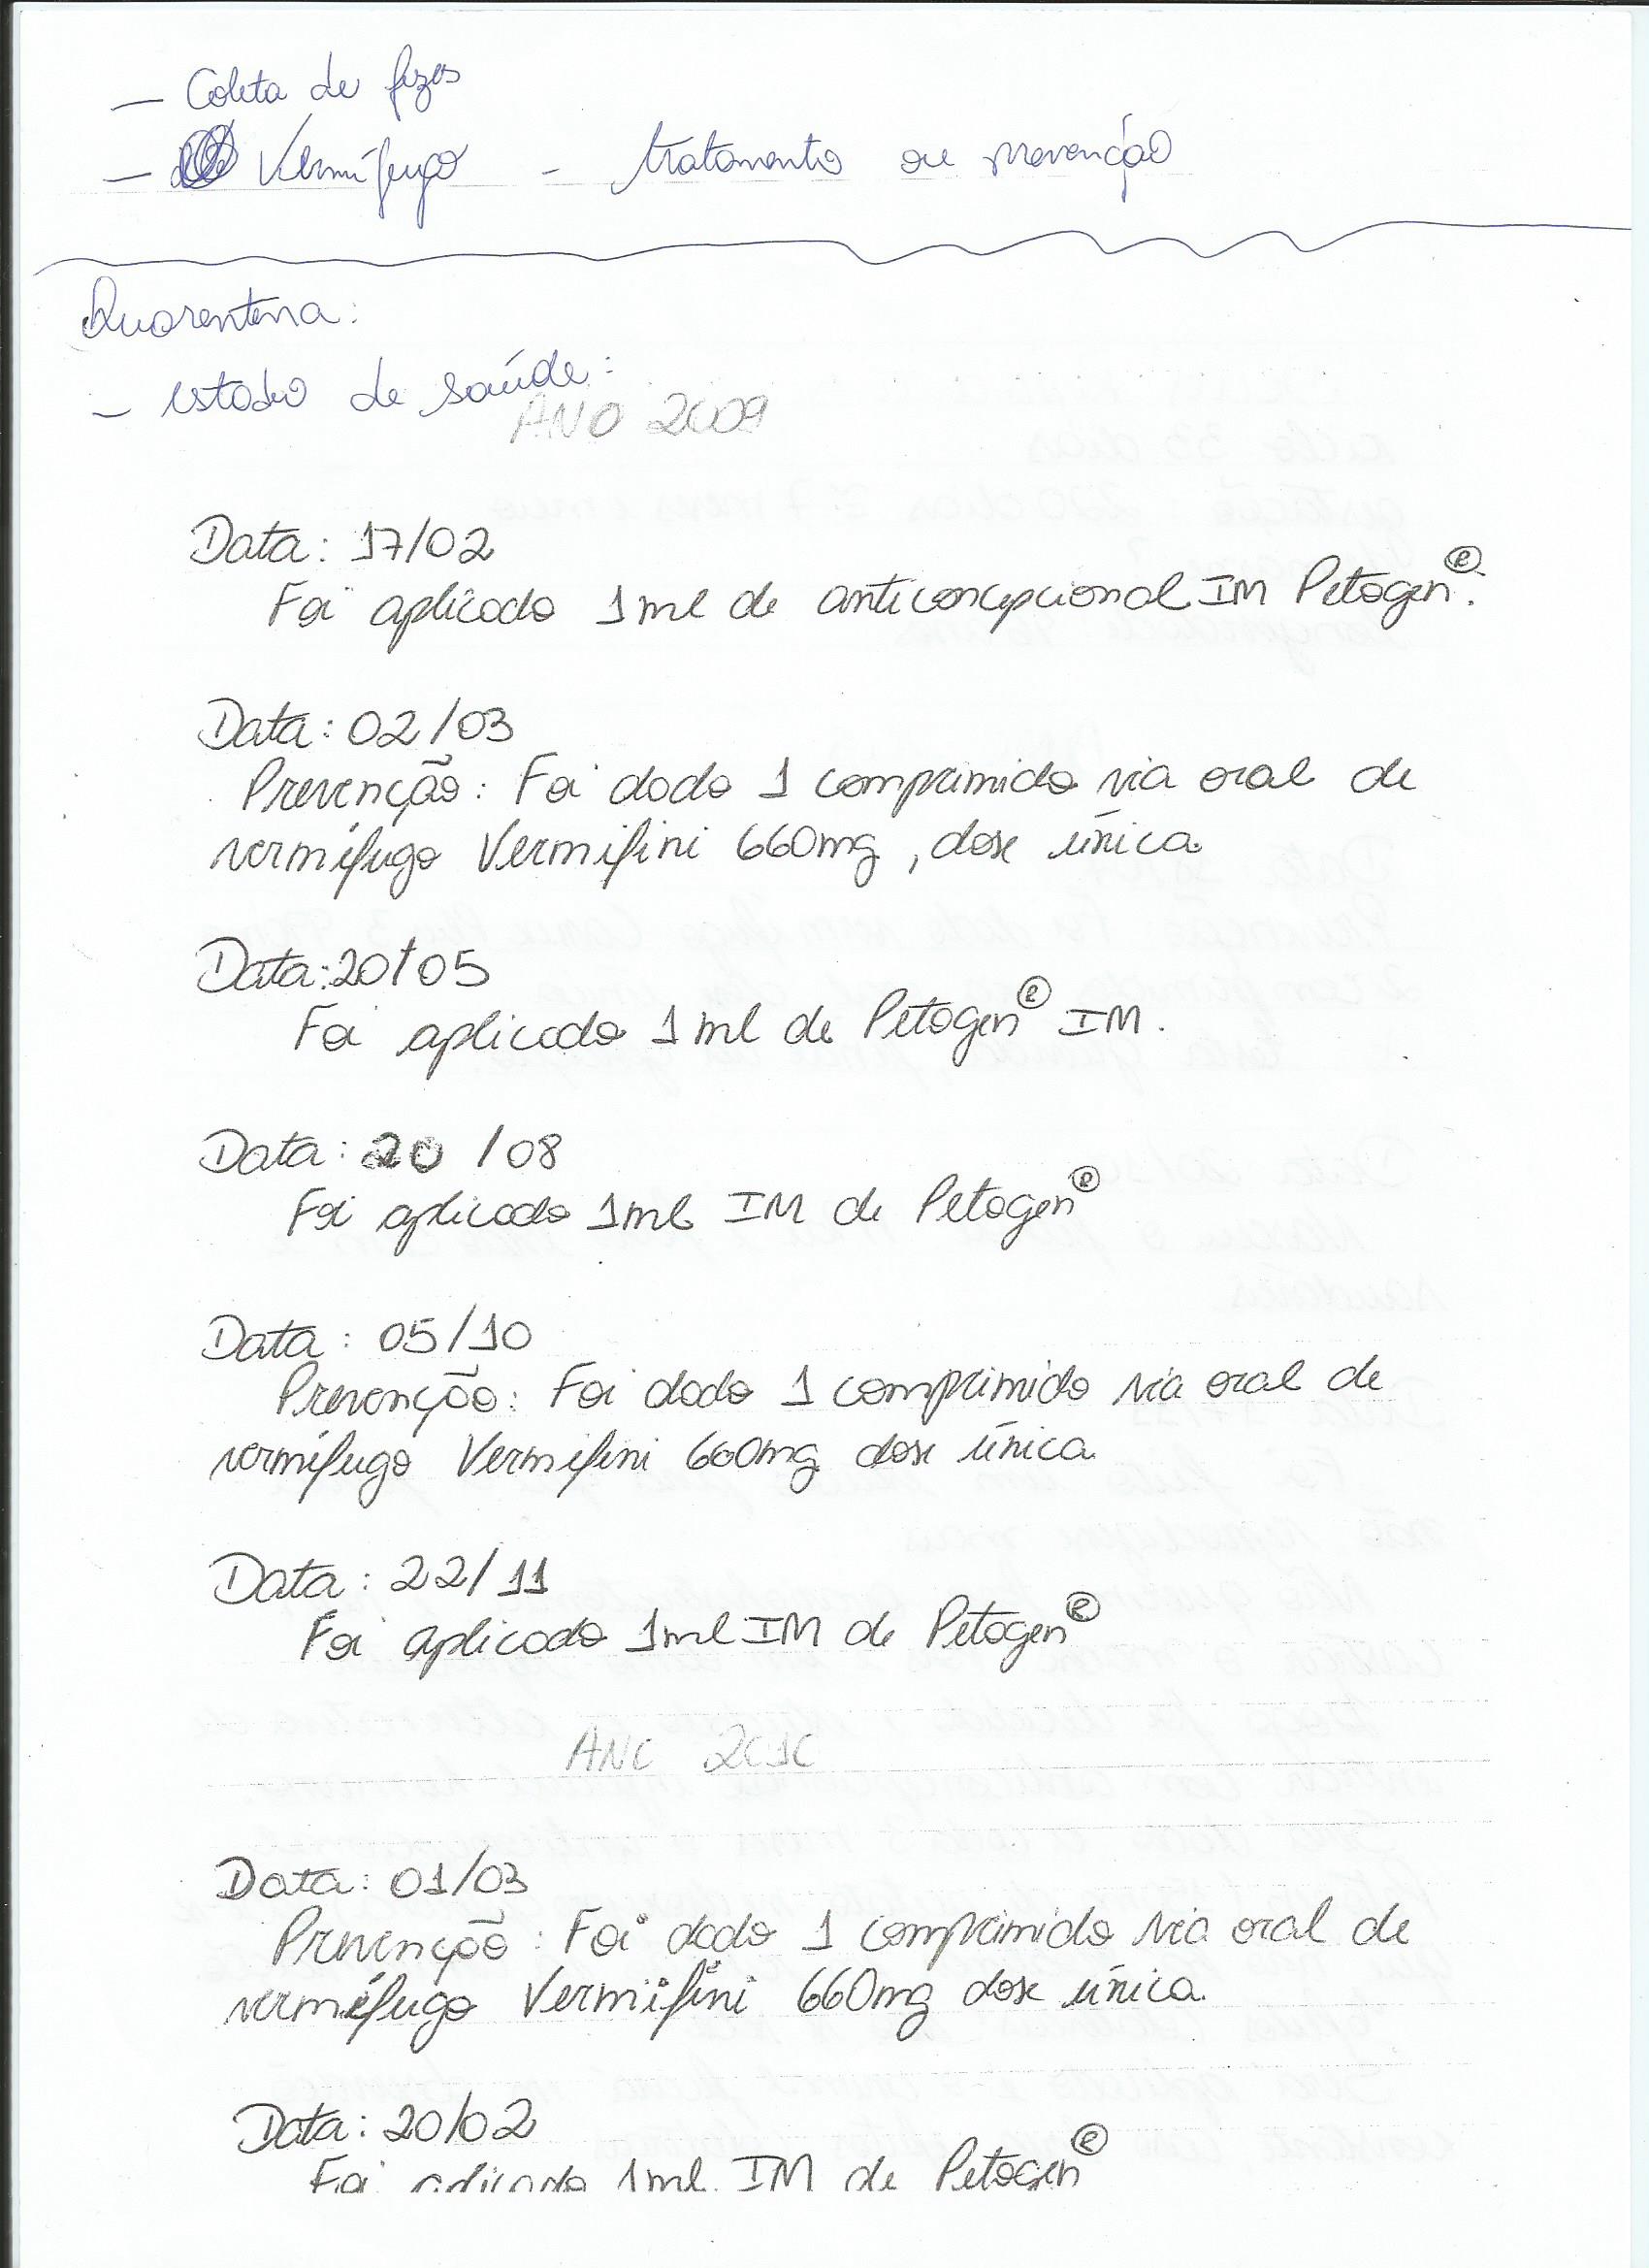 - Coleta de fezes
- Vermífugo - tratamento ou prevenção
Quarentena:
- estado de saúde:
ANO 2009
Data: 17/02
Foi aplicado 1ml de anticoncepcional IM Petogen®.
Data: 02/03
Prevenção: Foi dado 1 comprimido via oral de
vermífugo Vermifini 660mg, dose única
Data: 20/05
Foi aplicado 1ml de Petogen® IM.
Data: 20/08
Foi aplicado 1ml IM de Petogen®
Data: 05/10
Prevenção: Foi dado 1 comprimido via oral de
vermífugo Vermifini 660mg dose única.
Data: 22/11
Foi aplicado 1ml IM de Petogen®
ANO 2010
Data: 01/03
Prevenção: Foi dado 1 comprimido via oral de
vermífugo Vermifini 660mg dose única.
Data: 20/02
Foi aplicado 1ml. IM de Petogen®